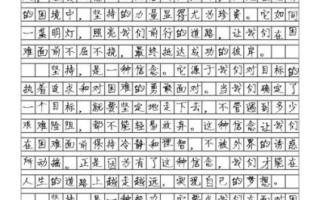 的困境中，坚持的力量显得尤为珍贵。它如同
一盏明灯，照亮我们前行的道路，让我们在困
难面前不屈不挠，最终抵达成功的彼岸。
坚持，是一种信念。它源于我们对目标的
执着追求和对困难的勇敢面对。当我们确定了
一个目标，就要坚定地走下去，不管遇到多少
艰难险阻，都不能轻易放弃。这种信念让我们
在困难面前保持冷静和理智，不被外界的诱惑
所动摇。正是因为有了这份信念，我们才能在
人生的道路上越走越远，实现自己的梦想。